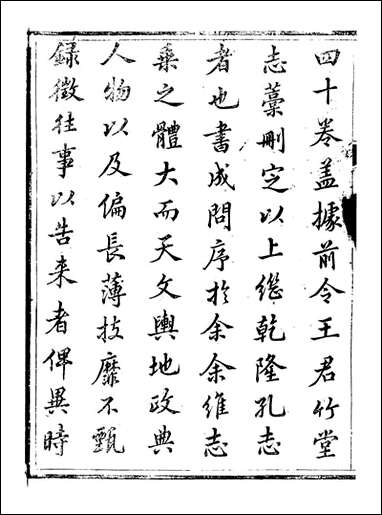 四十卷盖據前令王君竹堂
志藁刪定以上繼乾隆孔志
者也書成問序扵余余維志
乗之體大而天文輿地政典
人物以及偏長薄技靡不甄
録徵往事以告来者俾異時